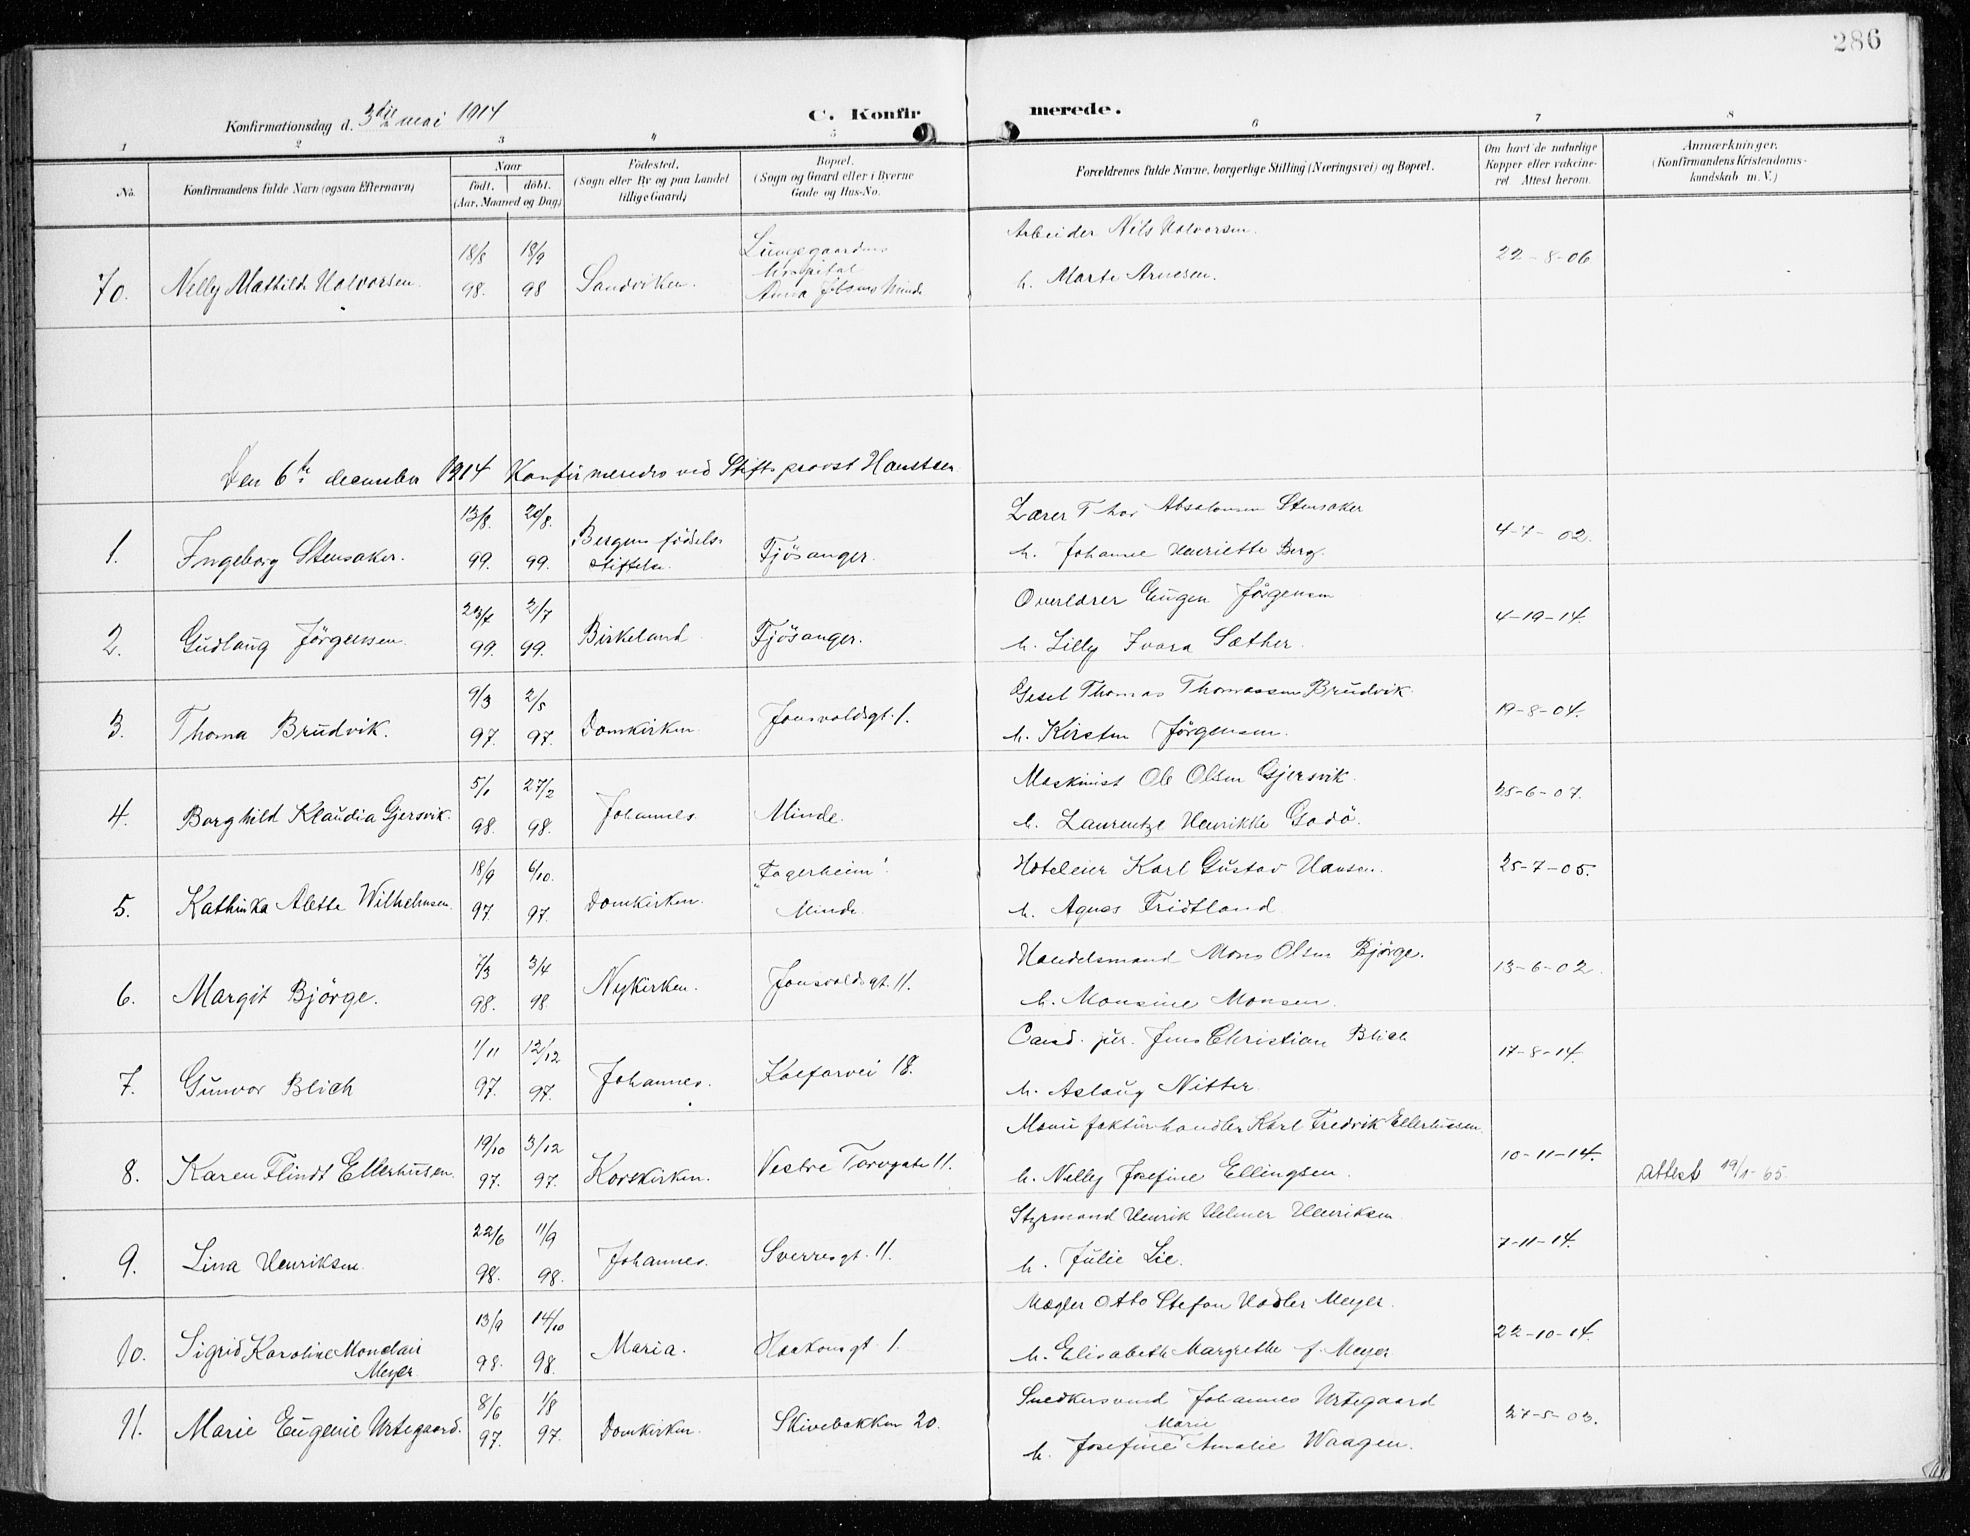 286
Konfirmationsdag d. 3die mai 1914
C. Konfirmerede.
1 2 3 4 5 6 7 8
No.
Konfirmandens fulde Navn (ogsaa Efternavn)
Naar
født. døbt.
(Aar, Maaned og Dag)
Fødested.
(Sogn eller By og paa Landet
tillige Gaard)
Bopæl.
(Sogn og Gaard eller i Byerne
Gade og Hus-No.
Forældrenes fulde Navne, borgerlige Stilling (Næringsvei) og Bopæl.
Om havt de naturlige
Kopper eller vakcine-
ret. Attest herom.
Anmærkninger.
(Konfirmandens Kristendoms-
kundskab m. V.)
70. Nelly Mathilde Halvorsen. 18/8 98. 18/9 98 Sandviken. Lungegaardens hospital Anna Jebsens Minde
Arbeider Nils Halvorsen. 22-8-06
h. Marte Arnesen.
Den 6te december 1914 Konfirmeredes ved Stiftsprovst Hansteen
1. Ingeborg Stensaker. 13/8. 99. 20/8. 99. Bergens födelsstiftelse. Fjösanger.
Lærer Thor Absalonsen Stensaker 4-7-02.
h. Johanne Henriette Berg.
2. Gudlaug Jörgensen. 99. 2/7 99. Birkeland Fjösanger.
Overlærer Eugen Jörgensen 4-19-14.
h. Lilly Ivara Sæther.
3. Thoma Brudvik. 9/3 97. 2/5 97. Domkirken Jonsvoldsgt. 1.
Gesel Thomas Thomassen Brudvik. 19-8-04.
h. Kirsten Jörgensen.
4. Borghild Klaudia Gjersvik. 5/1 98. 27/2 98. Johannes Minde.
Maskinist Ole Olsen Gjersvik. 25-6-07.
h. Laurentze Henrikke Godö.
5. Kathinka Alette Wilhelmsen. 18/9 97. 6/10. 97. Domkirken. "Fagerheim". Minde.
Hoteleier Karl Gustav Hansen. 25-7-05.
h. Agnes Fridtland.
6. Margit Björge. 7/3 98. 3/4 98. Nykirken. Jonsvoldsgt. 11.
Handelsmand Mons Olsen Björge. 13-6-02.
h. Monsine Monsen.
7. Gunvor Blich 1/11 97. 12/12 97. Johannes. Kalfarvei 18.
Cand. jur. Jens Christian Blich 17-8-14.
h. Aslaug Nitter.
8. Karen Flindt Ellerhusen. 19/10 97. 3/12 97. Korskirken. Vestre Torvgate 11.
Manufakturhandler Karl Fredrik Ellerhusen. 10-11-14.
h. Nelly Josefine Ellingsen. attest 19/1-65.
9. Lina Henriksen. 22/6 98. 11/9 98. Johannes. Sverresgt. 11.
Styrmand Henrik Helmer Henriksen. 7-11-14.
h. Julie Lie.
10. Sigrid Karoline Monclair Meyer. 13/9 98. 14/10 98. Maria. Haakonsgt. 1.
Mægler Otto Stefan Hadler Meyer. 22-10-14.
h. Elisabeth Margrethe f. Meyer
11. Marie Eugenie Urtegaard. 8/6 97. 1/8 97. Domkirken. Skivebakken 20.
Snedkersvend Johannes Urtegaard 27-5-03.
h. Josefine Marie Amalie Waagen.